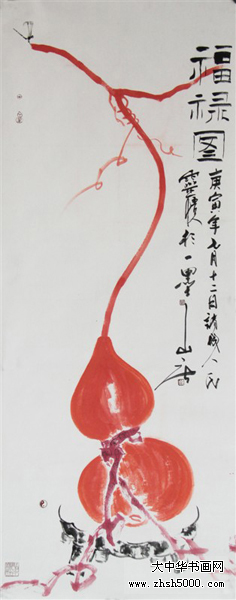 福禄图
庚寅年七月十二日诸城人氏
于一墨山房
大中华书画网
www.zhsh5000.com